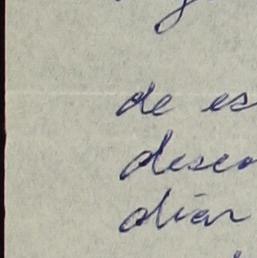 de es
deseo
diar